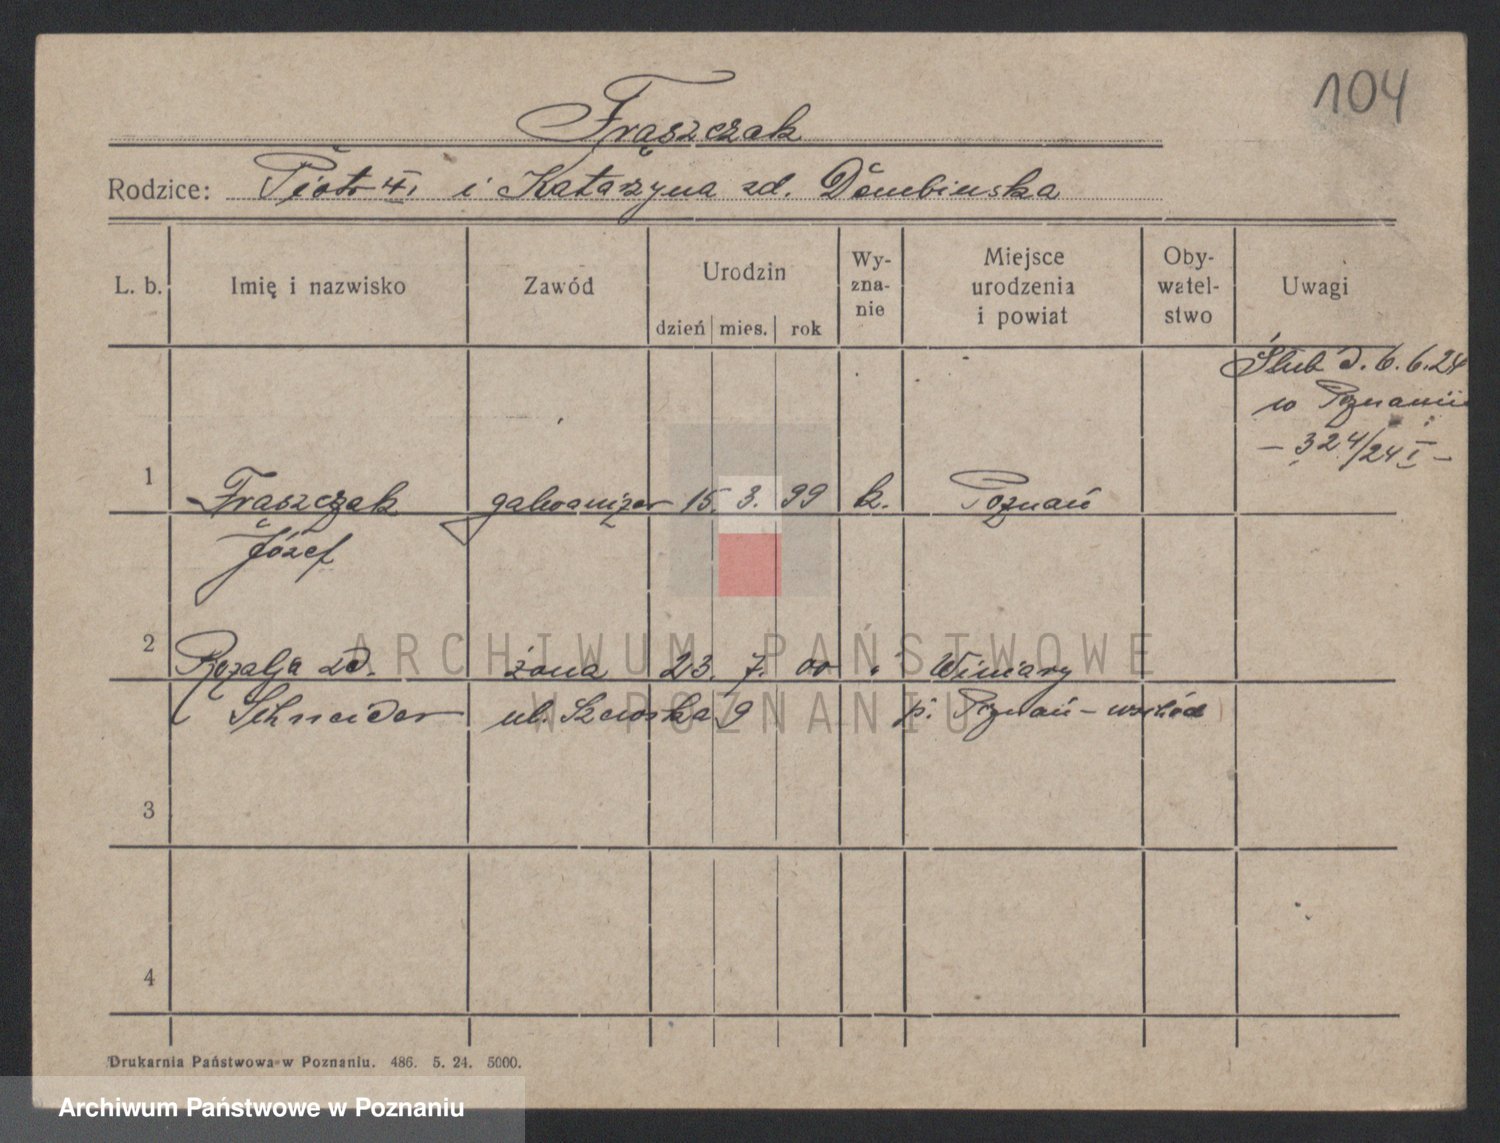 104
Frąszczak
Rodzice: Piotr II. i Katarzyna zd. Dembinska
L. b. Imię i nazwisko Zawód Urodzin Wy-zna-nie Miejsce urodzenia i powiat Oby-watel-stwo Uwagi
dzień mies. rok
Ślub d. 6.6.24
w Poznaniu
- 324/24 I -
1 Frąszczak galwanizer 15. 3. 99 k. Poznań
Józef
2 Rozalja zd. żona 23. 7. 00 " Winiary
Schneider ul. 9 p. Poznań-wschód
3
4
Drukarnia Państwowa w Poznaniu. 486. 5. 24. 5000.
ARCHIWUM PAŃSTWOWE
W POZNANIU
Archiwum Państwowe w Poznaniu